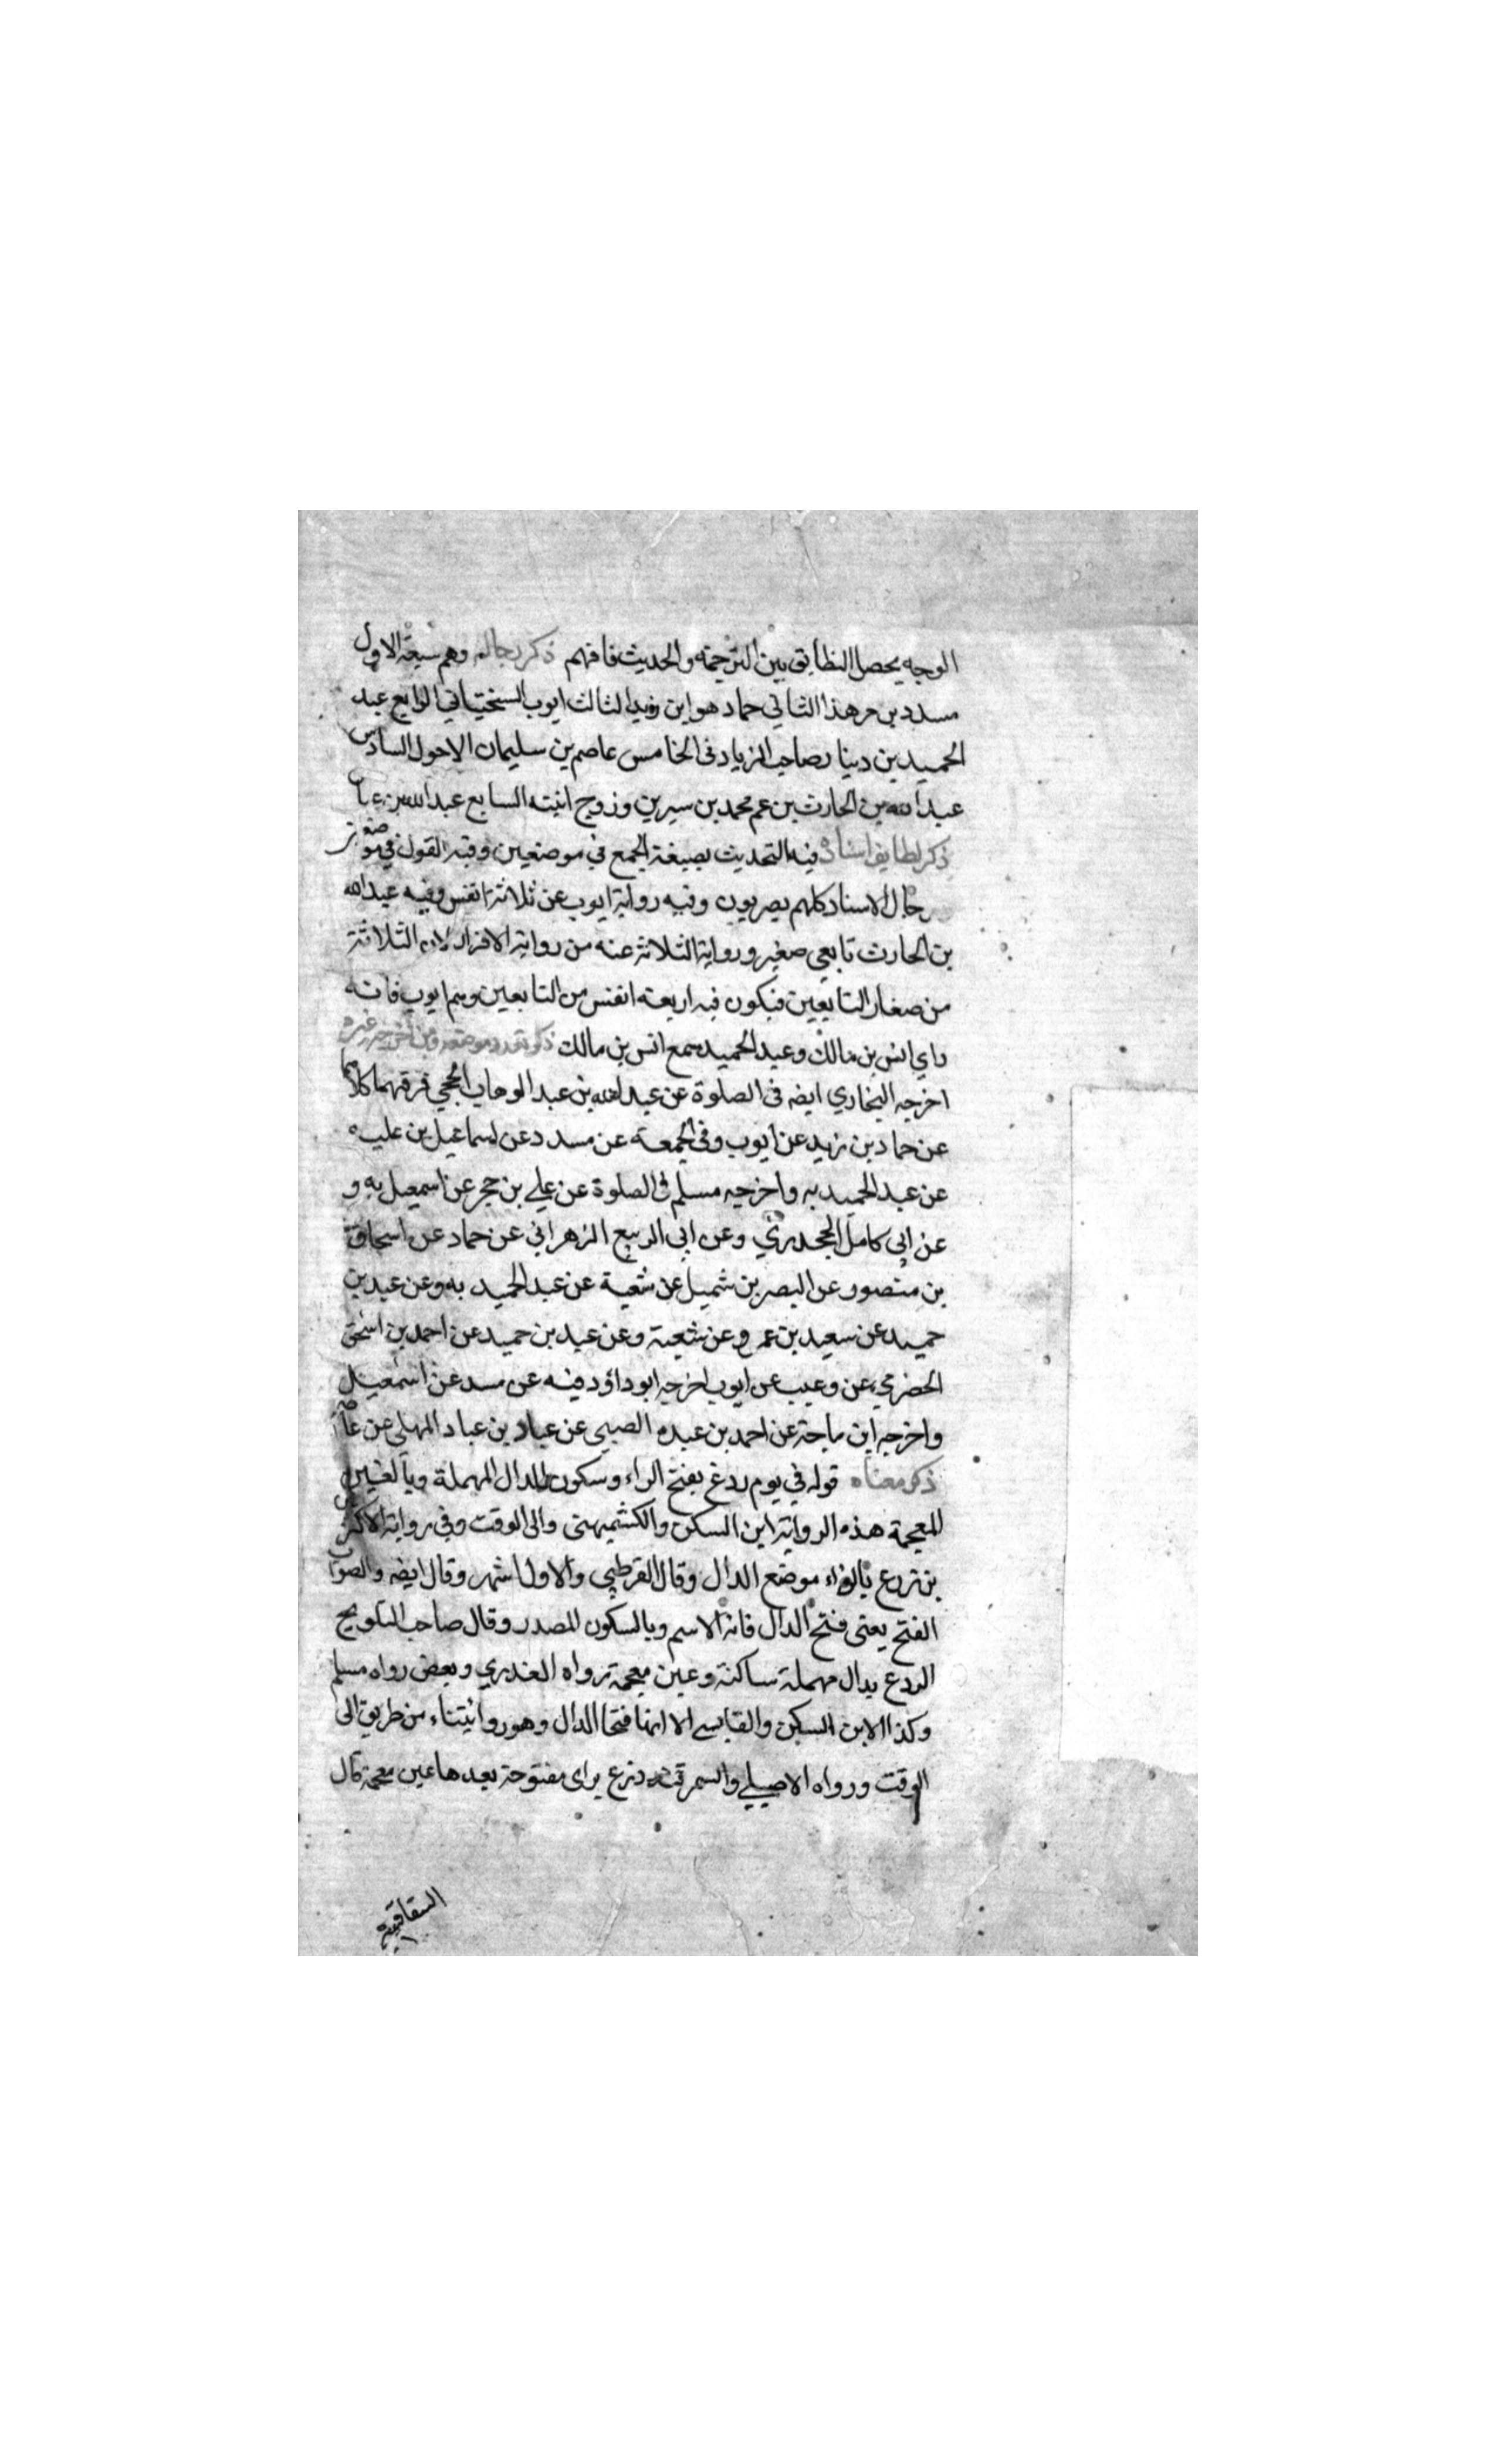 الوجه يحصل التطابق بين الترجمة والحديث فافهم ذكر رجاله وهم سبعة الاول
مسدد بن مرهد الثاني حماد هو ابن زيد الثالث ايوب السختياني الرابع عبد
الحميد بن دينار صاحب الزيادي الخامس عاصم بن سليمان الاحول السادس
عبد الله بن الحارث بن عم محمد بن سيرين وزوج ابنته السابع عبد الله بن عباس
ذكر لطايف اسناده فيه التحديث بصيغة الجمع في موضعين وفيه القول في موضعين
رجال الاسناد كلهم بصريون وفيه رواية ايوب عن ثلاثة انفس وفيه عبد الله
بن الحارث تابعي صغير ورواية الثلاثة عنه من رواية الاقران لان الثلاثة
من صغار التابعين فيكون فيه اربعة انفس من التابعين وهم ايوب فانه
راي انس بن مالك وعبد الحميد سمع انس بن مالك ذكر تعدد موضعه ومن اخرجه غيره
اخرجه البخاري ايضه في الصلوة عن عبد الله بن عبد الوهاب الحجبي فرقهما كلاهما
عن حماد بن زيد عن ايوب وفي الجمعة عن مسدد عن اسماعيل بن عليه
عن عبد الحميد به واخرجه مسلم في الصلوة عن علي بن حجر عن اسمعيل به و
عن ابي كامل الجحدري وعن ابي الربيع الزهراني عن حماد عن اسحاق
بن منصور عن النضر بن شميل عن شعبة عن عبد الحميد به وعن عبد بن
حميد عن سعيد بن عمرو عن شعبة وعن عبد بن حميد عن احمد بن اسحق
الحضرمي عن وهيب عن ايوب اخرجه ابو داؤد فيه عن مسدد عن اسمعيل
واخرجه ابن ماجة عن احمد بن عبده الضبي عن عباد بن عباد المهلبي عن عاصم
ذكر معناه قوله في يوم ردغ بفتح الراء وسكون الدال المهملة وبالغين
المعجمة هذه الرواية ابن السكن والكشميهني والى الوقت وفي رواية الاكثرين
رزغ بالزاء موضع الدال وقال القرطبي والاول اشهر وقال ايضه والصواب
الفتح يعني فتح الدال فانه الاسم وبالسكون المصدر وقال صاحب التلويح
الردغ بدال مهملة ساكنة وغين معجمة رواه العذري وبعض رواه مسلم
وكذا لابن السكن والقابسي الا انهما فتحا الدال وهو روايتنا من طريق ابى
الوقت ورواه الاصيلي والسمرقندي رزغ براى مفتوحة بعدها غين معجمة قال